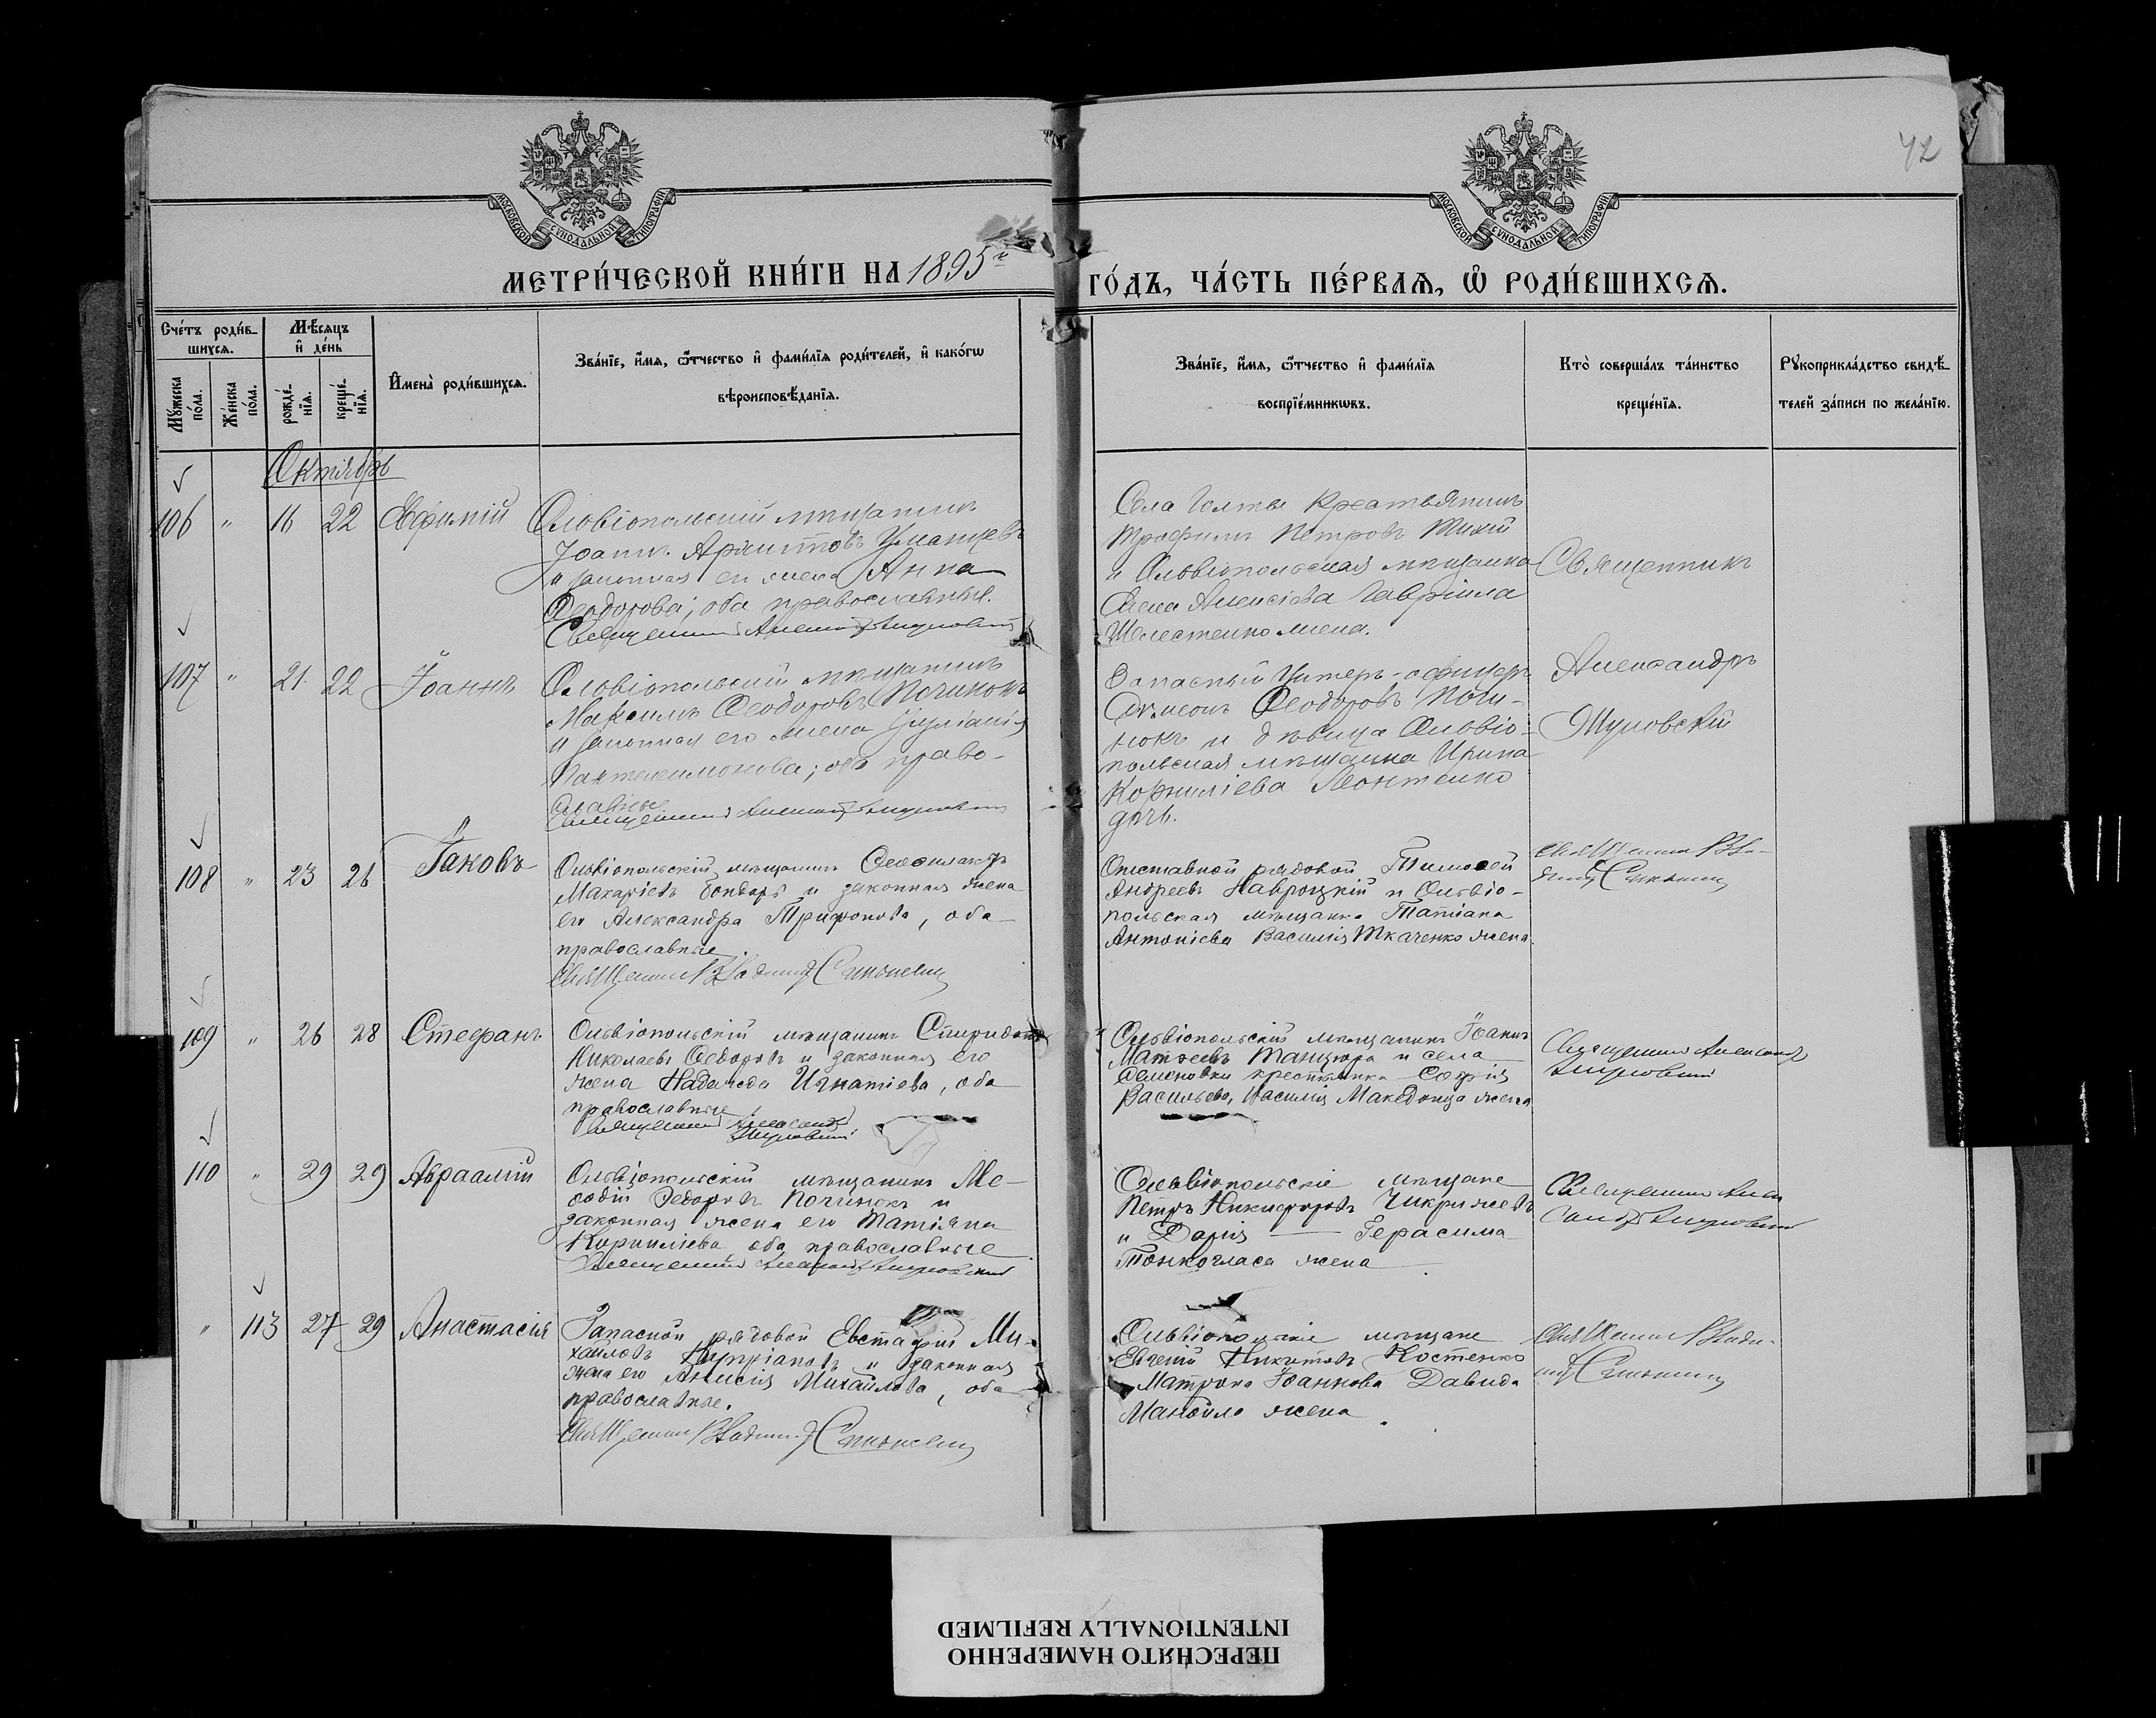 42
МОСКОВСКОЙ СѴНОДАЛЬНОЙ ТИПОГРАФІИ
МОСКОВСКОЙ СѴНОДАЛЬНОЙ ТИПОГРАФІИ
МЕТРИ́ЧЕСКОЙ КНИ́ГИ НА 1895 г
ГО́ДЪ, ЧА́СТЬ ПЕ́РВАѦ, Ѡ҆ РОДИ́ВШИХСѦ.
Сче́тъ роди́в-
шихсѧ.
Мꙋ́жеска по́ла.
Же́нска по́ла.
Мѣ́сѧцъ
и҆ де́нь
рожде́-
нїѧ.
креще́-
нїѧ.
И҆мена̀ роди́вшихсѧ.
Зва́нїе, и҆́мѧ, ѻ҆́тчество и҆ фами́лїѧ роди́телей, и҆ како́гѡ
вѣроисповѣ́данїѧ.
Зва́нїе, и҆́мѧ, ѻ҆́тчество и҆ фами́лїѧ
воспрїе́мникѡвъ.
Кто̀ соверша́лъ та́инство
креще́нїѧ.
Рꙋкоприкла́дство свидѣ́-
телей за́писи по жела́нїю.
Октябрь
106 " 16 22 Евфимій
Ольвіопольский мѣщанинъ
Іоаннъ
и законная его жена Анна
Феодорова; оба православные.
Священникъ Александръ Жуповский
Села Голты Крестьянинъ
Трофимъ Петровъ Тихій
и Ольвіопольская мѣщанка
Алексіева Гавріила
Шелестенко жена.
Священникъ
Александръ
107 " 21. 22 Іоаннъ
Ольвіопольский мѣщанинъ
Максимъ Феодоровъ Починокъ
и законная его жена Іуліанія
Пантелеимонова; оба право-
славные
Запасный Унтеръ-офицеръ
Сѵмеонъ Феодоровъ Почи-
нокъ и дѣвица Ольвіо-
польская мѣщанка Ирина
Корниліева Леонтенко
дочь.
108 " 23 26 Іаковъ
Ольвіопольскій мѣщанинъ Феофилактъ
Макаріевъ Бондарь и законная жена
его Александра Трифонова, оба
православные
Священникъ Владиміръ
Отставной рядовой Тимофей
Андреевъ Навроцкій и Ольвіо-
польская мѣщанка Татіана
Антоніева Василія Ткаченко жена.
Священникъ Вла-
109 " 26 28 Стефанъ
Ольвіопольскій мѣщанинъ Спиридонъ
Николаевъ Федоровъ и законная его
жена Надежда Игнатіева, оба
православные
Священникъ Александръ
Ольвіопольскій мѣщанинъ Іоаннъ
Матѳеевъ Танцюра и села
Семеновки крестьянка Софія
Васильева, Василія Македонца жена
Священникъ Александръ
110 " 29 29 Авраамій
Ольвіопольскій мѣщанинъ Ме-
ѳодій Федоровъ Починокъ и
законная жена его Татіана
Корниліева оба православные
Священникъ Александръ
Ольвіопольскіе мѣщане
Петръ Никифоровъ Чикрижевъ
и Дарія — Герасима
Тонкогласа жена
Священникъ Алек
" 113 27 29 Анастасія
Запасной рядовой Евстафій Ми-
хаиловъ Кипріановъ и законная
жена его Анисія Михайлова, оба
православные.
Священникъ Владиміръ
Ольвіопольскіе мѣщане
Евгеній Никитовъ Костенко
Матрона Іоаннова Давида
Манойло жена.
Священникъ Влади-
ПЕРЕСНЯТО НАМЕРЕННО
INTENTIONALLY REFILMED